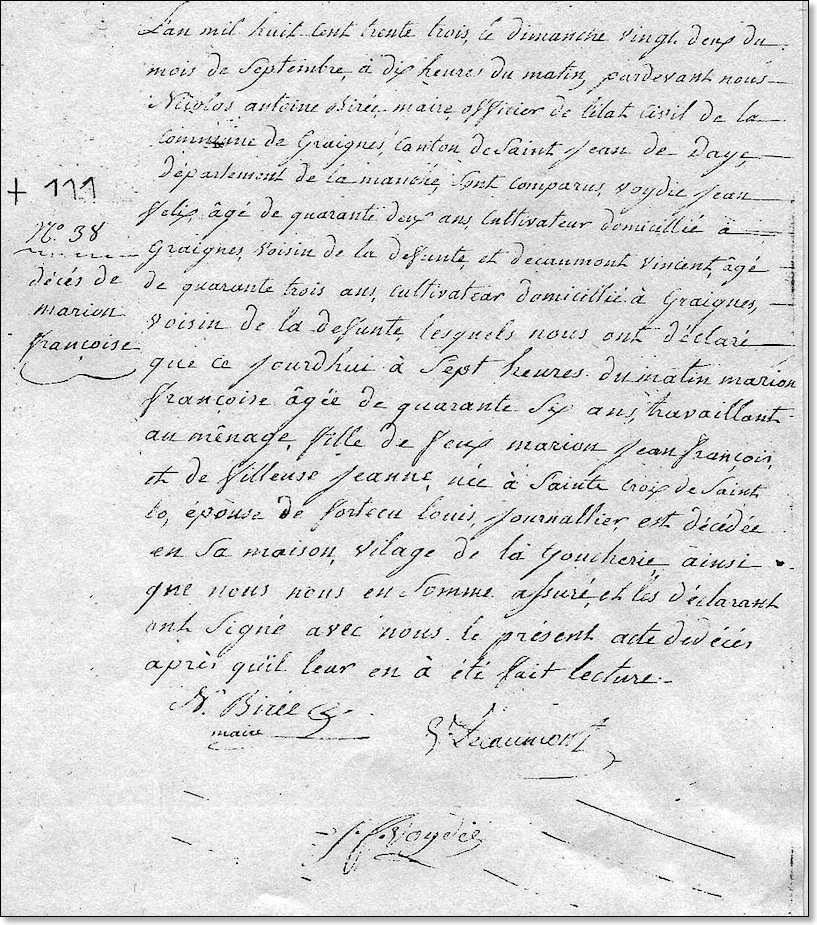 L'an mil huit cent trente trois, le dimanche vingt deux du
mois de Septembre, à dix heures du matin, pardevant nous
Nicolas antoine Birée, maire officier de l'état Civil de la
Commune de Graignes, Canton de Saint Jean de Daye,
département de la manche, Sont comparus, Voydie Jean
felix, âgé de quarante deux ans, Cultivateur domicillié à
Graignes, voisin de la defunte, et decaumont vincent, âgé
de quarante trois ans, Cultivateur domicillié à Graignes,
voisin de la defunte, lesquels nous ont déclaré
que ce jourdhui à Sept heures du matin marion
françoise âgée de quarante Six ans, travaillant
au ménage, fille de feux marion Jean françois,
et de Villeuse Jeanne, née à Sainte Croix de Saint
lo, épouse de fortecu louis, Journallier, est décédée
en Sa maison, vilage de la Goucherie, ainsi
que nous nous en Somme assuré, et les déclarant
ont Signé avec nous le présent acte de décés
après qu'il leur en à été fait lecture.
+ 111
N.o 38
décés de
marion
françoise
N. Birée
maire
V. Decaumont
J. f. Voydie